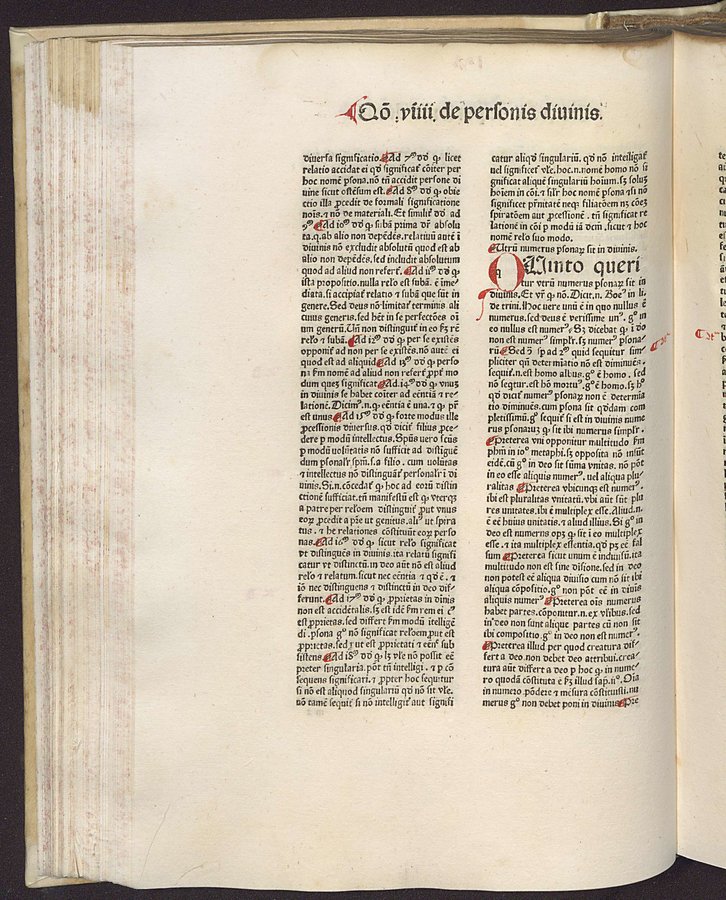 Qō .viiii. de personis diuinis.
diuersa significatio. Ad 7ᵐ dōᵐ ꝙ licet
relatio accidat ei qd significat͛ cōiter per
hoc nomē ꝑsona. nō tn̄ accidit persone di
uine sicut ostēsum est. Ad 8ᵐ dōᵐ ꝙ obie
ctio illa ꝓcedit de formali significatione
nois. ⁊ nō de materiali. Et similit͛ dōᵐ ad
9ᵐ Ad 10ᵐ dōᵐ ꝙ subā prima dr̄ absolu
ta. q. ab alio non depēdēs. relatiuū autē ī
diuinis nō excludit absolutū quod est ab
alio non depēdēs. sed includit absolutum
quod ad aliud non refert͛. Ad 11ᵐ dōᵐ ꝙ
ista propositio. nulla relo est subā. ē īme/
diata. si accipiat͛ relatio ⁊ subā que sūt in
genere. Sed deus nō limitat͛ terminis ali
cuius generis. sed hēt in se perfectōes oī
um generū. Un̄ non distinguit͛ in eo ẜm rē
relo ⁊ subā. Ad 12ᵐ dōᵐ ꝙ per se existēs
opponit͛ ad non per se existēs. nō autē ei
quod est ad aliquid Ad 13ᵐ dōᵐ ꝙ perso
na ẜm nomē ad aliud non refert͛ ꝓpt̄ mo
dum quez significat Ad .14ᵐ dōᵐ ꝙ vnuz
in diuinis se habet cōiter ad eēntiā ⁊ re/
lationē. Dicimᵘˢ .n. ꝙ eēntia ē vna. ⁊ ꝙ pr̄
est vnus Ad 15ᵐ dōᵐ ꝙ forte modus ille
ꝓcessionis diuersus. qd dicit͛ filius ꝓce/
dere ꝑ modū intellectus. Spūs uero scūs
ꝑ modū uolūtatis nō sufficit ad distiguē
dum personalr̄ spm̄. s. a filio. cum uolūtas
⁊ intellectus nō distinguāt͛ personalr̄ ī di
uinis. Si. n. cōcedat͛ ꝙ hoc ad eorū distin
ctionē sufficiat. tn̄ manifestū est ꝙ vterqz
a patre per reloem distinguit͛ put vnus
eorz ꝓcedit a pr̄e ut genitus. aliᵘˢ ut spira
tus . ⁊ he relationes cōstituūt eorz perso
nas. Ad 16ᵐ dōᵐ ꝙ sicut relo significat͛
vt distinguēs in diuinis. ita relatū signifi
catur vt distinctū. in deo aūt nō est aliud
relo ⁊ relatum. sicut nec eēntia ⁊ qd ē . ⁊
iō nec distinguens ⁊ distinctū in deo dif/
ferunt. Ad 17ᵐ dōᵐ ꝙ ꝓprietas in diuīs
non est accidētalis. sz est idē ẜm rem ei cᵘⁱ
est ꝓprietas. sed differt ẜm modū itelligē
di . ꝑsona gᵒ nō significat reloem put est
ꝓprietas. sed ꝓut est ꝓprietati ⁊ eēnt͛ sub
sistens. Ad 18ᵐ dōᵐ ꝙ lz vle nō possit eē
preter singularia. pōt tn̄ intelligi . ⁊ ꝑ cō
sequens significari. ⁊ propter hoc sequitur
si nō est aliquod singulariū qd nō sit vle.
nō tamē sequit͛ si nō intelligit͛ aut signifi
catur aliqd singulariū. qd nō intelligit͛
uel significet͛ vle. hoc .n. nomē homo nō si
gnificat aliquē singulariū hoīum. sz soluz
hoīem in cōi. ⁊ sil̄r hoc nomē ꝑsona ⁊ si nō
significet pr̄nitatē neqz filiatōem nz cōez
spiratōem aut ꝓcessionē . tn̄ significat re
lationē in cōi ꝑ modū iā dcm̄. sicut ⁊ hoc
nomē relo suo modo.
Utrū numerus ꝑsonarz sit in diuinis.
Quinto queri
tur vtrū numerus ꝑsonarz sit in
diuinis. Et vr̄ ꝙ nō. Dicit .n. Boeᵘˢ in li.
de trini. Hoc uere unū ē in quo nullus ē
numerus. sed deus ē verissime unᵘˢ. gᵒ in
eo nullus est numerᵘˢ Sz dicebat͛ ꝙ i do
non est numerᵘˢ simplr̄. sz numerᵘˢ ꝑsona/
rū Sed ꝯ sp ad 2ᵐ quid sequitur sim/
pliciter qn̄ determiatio nō est diminuēs.
sequit͛ .n. est homo albus. gᵒ ē homo. sed
nō seqtur. est hō mortuᵘˢ. gᵒ ē homo. sz hᵒ
qd dicit͛ numerᵘˢ ꝑsonarz non ē determia
tio diminuēs. cum ꝑsona sit qddam com
pletissimū. gᵒ sequit͛ si est in diuinis nume
rus ꝑsonarz ꝙ sit ibi numerus simplr̄.
Preterea vni opponitur multitudo ẜm
phm̄ in 10ᵒ metaphi. sz opposita nō insūt
eidē. cū gᵒ in deo sit sūma vnitas. nō pōt
in eo esse aliquis numerᵘˢ. uel aliqua plu/
ralitas Preterea vbicunqz est numerᵘˢ.
ibi est pluralitas vnitatū. vbi aūt sūt plu
res unitates. ibi ē multiplex esse. Aliud .n.
ē eē hᵘius unitatis. ⁊ aliud illius. Si gᵒ in
deo est numerus ops ꝙ sit i eo multiplex
esse . ⁊ ita multiplex essentia. qd pz eē fal
sum Preterea sicut unum ē indiuisū. ita
multitudo non est sine diuisione. sed in deo
non potest eē aliqua diuisio cum nō sit ibi
aliqua cōpositio. gᵒ non pōt eē in diuis
aliquis numerᵘˢ Preterea ois numerus
habet partes. cōponitur .n. ex vnitatibus. sed
in deo non sunt alique partes cū non sit
ibi compositio. gᵒ in deo non est numerᵘˢ.
Preterea illud per quod creatura dif/
fert a deo. non debet deo attribui. crea/
tura aūt differt a deo ꝑ hoc ꝙ in nume/
ro quodā cōstituta ē ẜm illud sap. iiᵒ. Oīa
in numero pōdere ⁊ mēsura cōstituisti. nu
merus gᵒ non debet poni in diuinis Pre